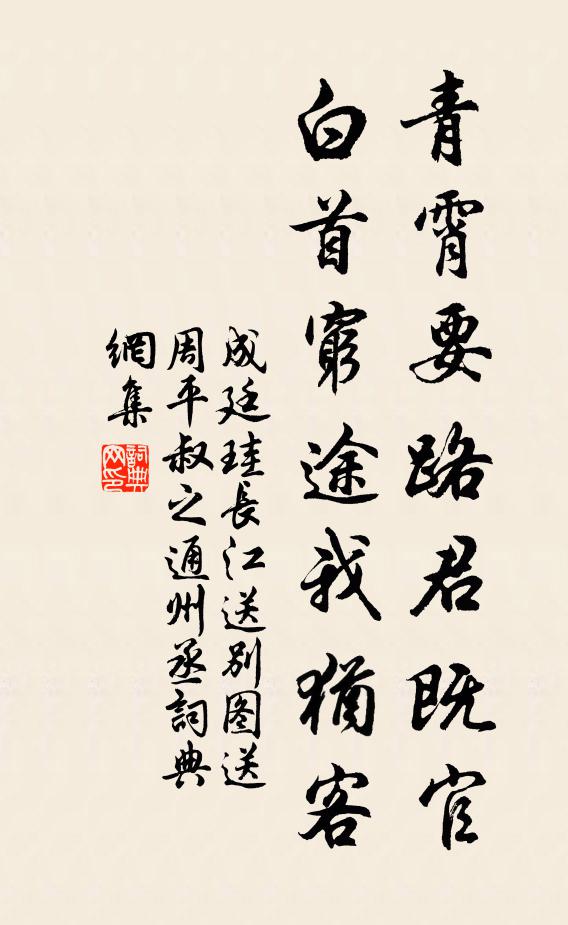 青霄要路君既官
白首窮途我猶客
成廷珪長江送別图送
周平叔之通州丞詞典
網集
詞典
网印